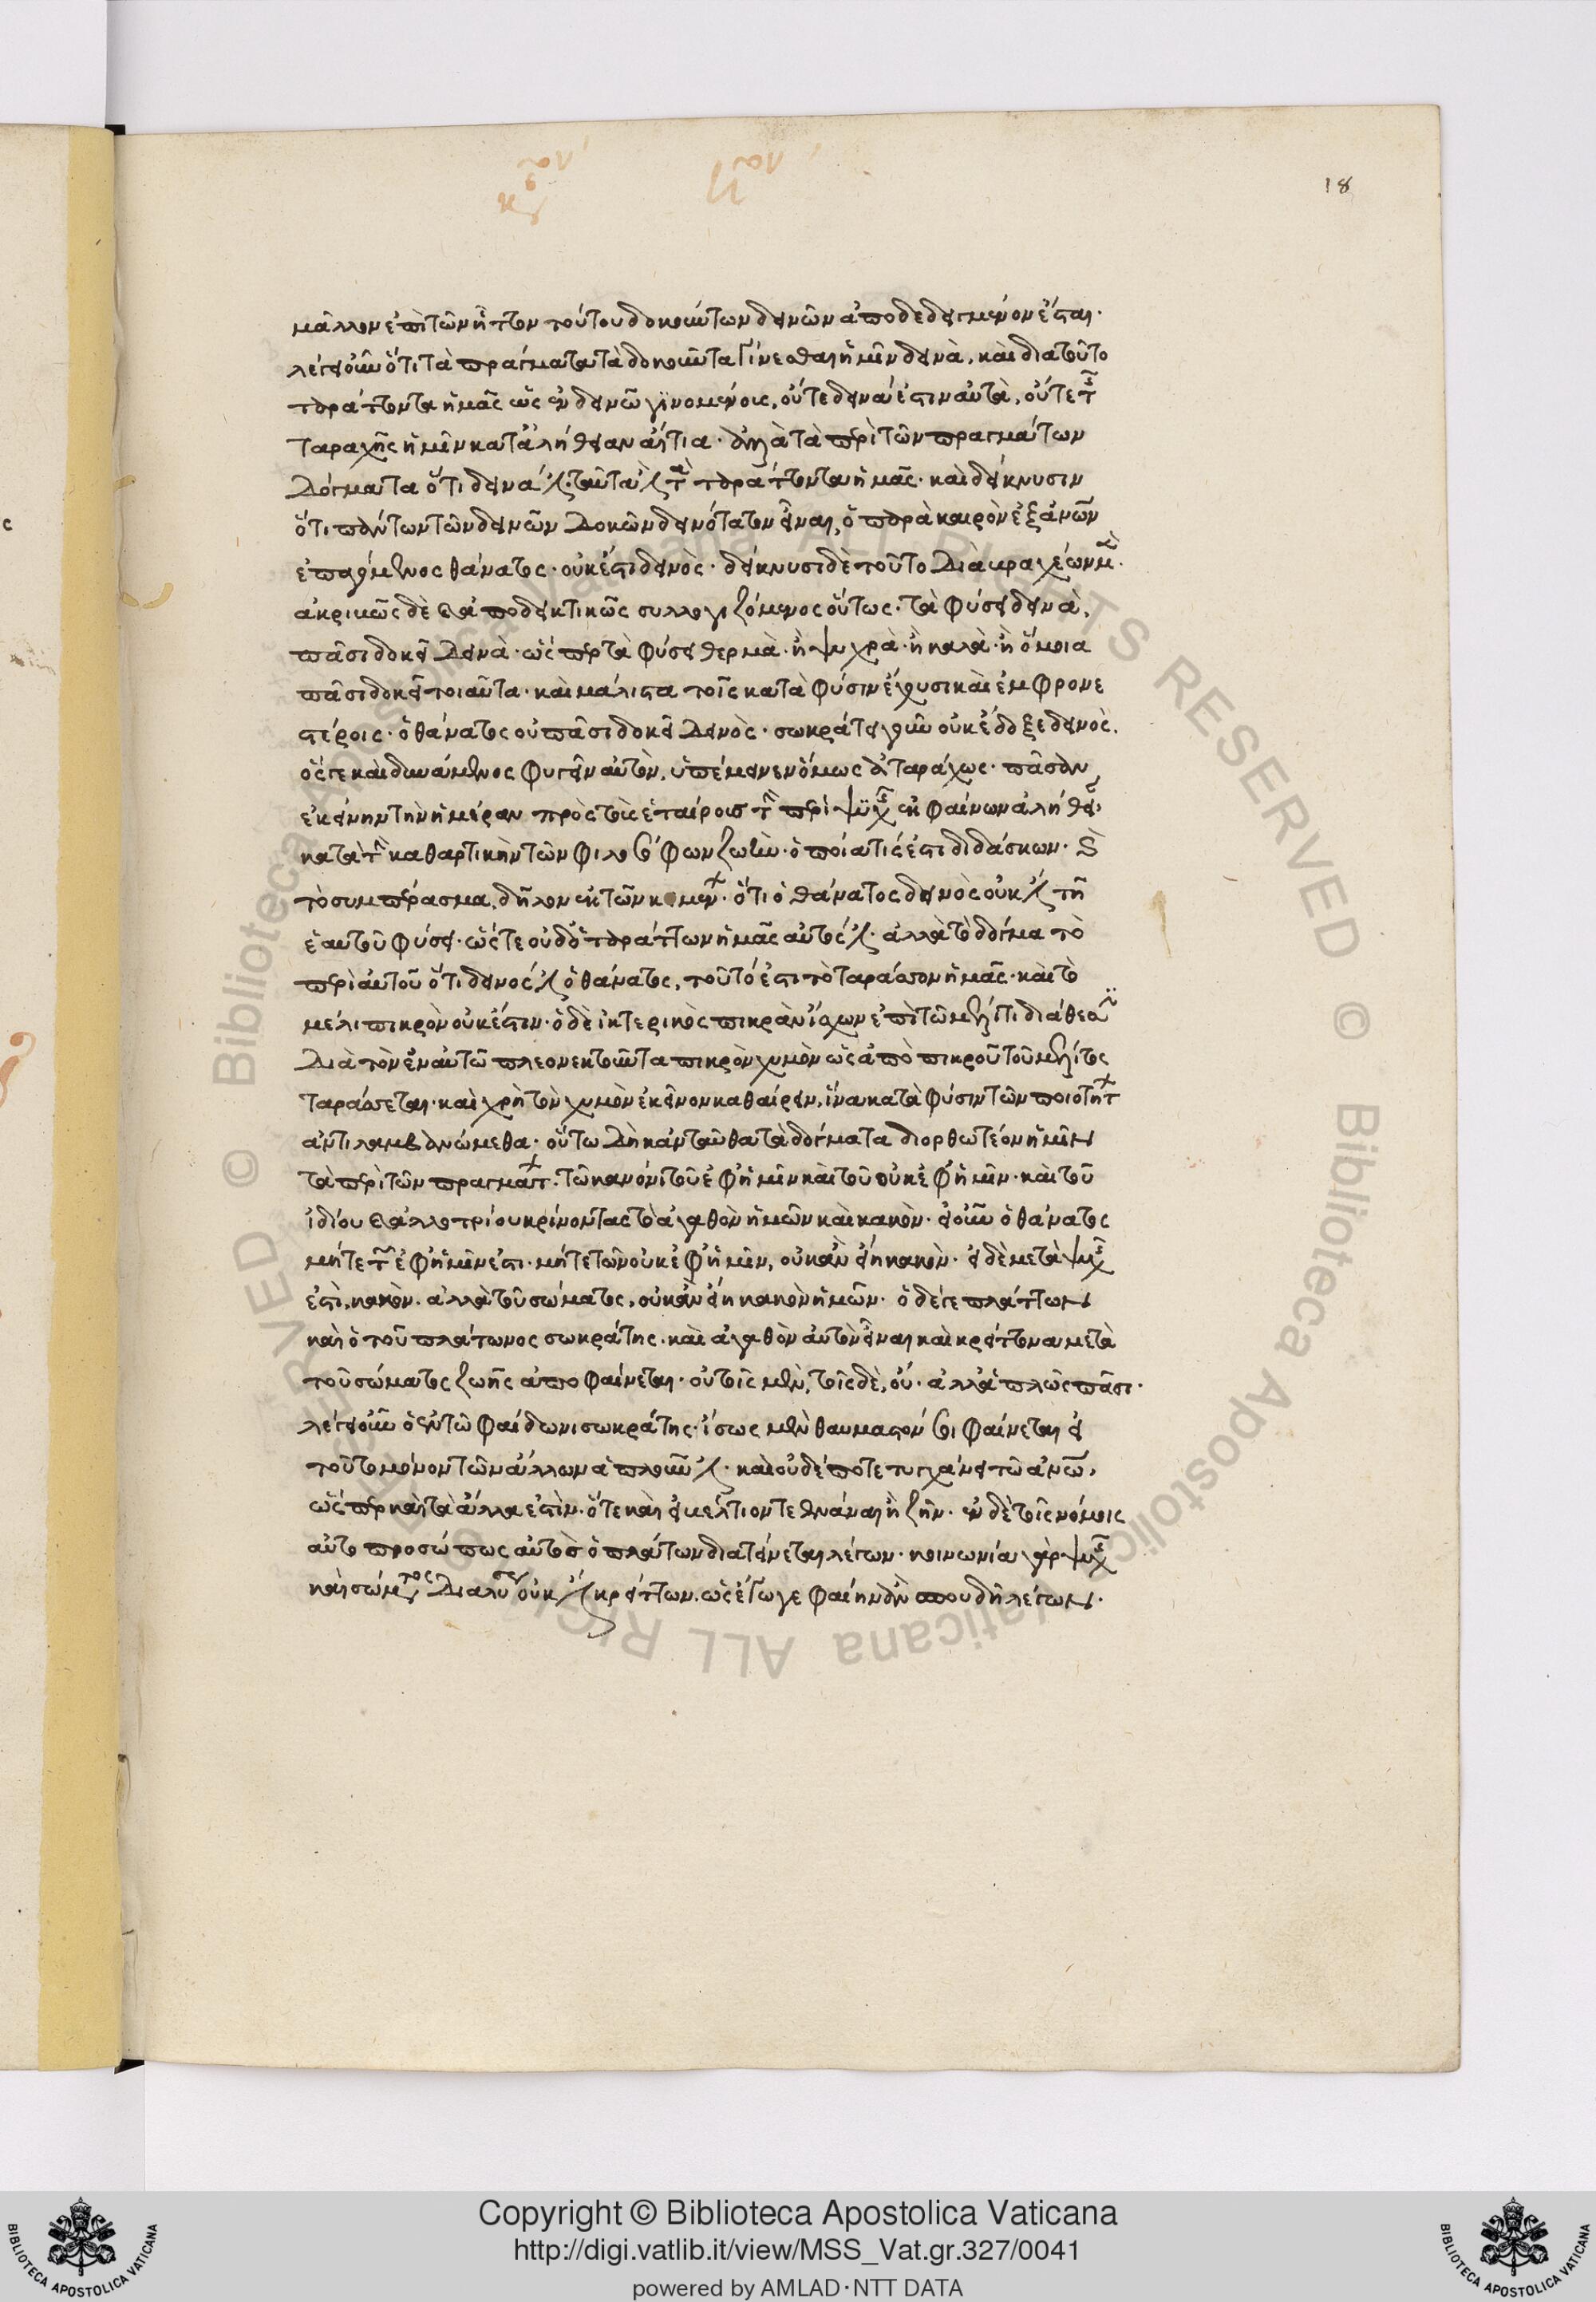 18
μᾶλλον ἐπὶ τῶν ἧττον τούτου δοκούντων δεινῶν ἀποδεδειγμένον ἔσται·
λέγει οὖν ὅτι τὰ πράγματα τὰ δοκοῦντα γίνεσθαι ἡμῖν δεινὰ, καὶ διὰ τοῦτο
ταράττοντα ἡμᾶς ὡς ἐν δεινῶ γινομένοις, οὔτε δεινά ἐστιν αὐτὰ, οὔτε τῆς
ταραχῆς ἡμῖν κατ' ἀλήθειαν αἴτια· ἀλλὰ τὰ περὶ τῶν πραγμάτων
δόγματα ὅτι δεινά ἐστι· ταῦτά ἐστι τὰ ταράττοντα ἡμᾶς· καὶ δείκνυσιν
ὅτι πάντων τῶν δεινῶν δοκῶν δεινότατον εἶναι, ὁ παρὰ καιρὸν ἐξ ἀνῶν
ἐπαγόμενος θάνατος· οὐκ ἔστι δεινὸς· δείκνυσι δὲ τοῦτο διὰ βραχέων μὲν·
ἀκριβῶς δὲ καὶ ἀποδεικτικῶς συλλογιζόμενος οὕτως· τὰ φύσει δεινὰ,
πᾶσι δοκεῖ δεινὰ· ὥσπερ τὰ φύσει θερμὰ· ἢ ψυχρὰ· ἢ καλὰ· ἢ ὅμοια
πᾶσι δοκεῖ τοιαῦτα· καὶ μάλιστα τοῖς κατὰ φύσιν ἔχουσι καὶ ἐμφρονε
στέροις· ὁ θάνατος οὐ πᾶσι δοκεῖ δεινὸς· σωκράτει γοῦν οὐκ ἔδοξε δεινὸς.
ὅς γε καὶ δυνάμενος φυγεῖν αὐτὸν, ὑπέμεινεν ὅμως ἀταράχως· πᾶσαν
ἐκείνην τὴν ἡμέραν πρὸς τοὺς ἑταίρους τὴν περὶ ψυχῆς ἐκφαίνων ἀλήθειαν·
κατὰ τὴν καθαρτικὴν τῶν φιλοσόφων ζωὴν· ὁποία τίς ἐστι διδάσκων· καὶ
τὸ συμπέρασμα, δῆλον ἐκ τῶν κειμένων· ὅτι ὁ θάνατος δεινὸς οὐκ ἔστι τῆ
ἑαυτοῦ φύσει· ὥστε οὐδὲ ὁ ταράττων ἡμᾶς αὐτός ἐστι· ἀλλὰ τὸ δόγμα τὸ
περὶ αὐτοῦ ὅτι δεινός ἐστι ὁ θάνατος, τοῦτό ἐστι τὸ ταράσσον ἡμᾶς· καὶ τὸ
μέλι πικρὸν οὐκ ἔστιν· ὁ δὲ ἰκτερικὸς πικρὰν ἴσχων ἐπὶ τῶ μέλιτι διάθεσιν
διὰ τὸν ἐν αὐτῶ πλεονεκτοῦντα πικρὸν χυμὸν ὡς ἀπὸ πικροῦ τοῦ μέλιτος
ταράσσεται· καὶ χρὴ τὸν χυμὸν ἐκεῖνον καθαίρειν, ἵνα κατὰ φύσιν τῶν ποιοτήτων
ἀντιλαμβανώμεθα· οὕτω δὴ κἀνταῦθα τὰ δόγματα διορθωτέον ἡμῖν
τὰ περὶ τῶν πραγμάτων· τῶ κανόνι τοῦ ἐφ' ἡμῖν καὶ τοῦ οὐκ ἐφ' ἡμῖν· καὶ τοῦ
ἰδίου καὶ ἀλλοτρίου κρίνοντας τὸ ἀγαθὸν ἡμῶν καὶ κακὸν· εἰ οὖν ὁ θάνατος
μήτε τῶν ἐφ' ἡμῖν ἐστι· μήτε τῶν οὐκ ἐφ' ἡμῖν, οὐκ ἂν εἴη κακὸν· εἰ δὲ μετὰ ψυχῆς
ἐστὶ, κακὸν· ἀλλὰ τοῦ σώματος, οὐκ ἂν εἴη κακὸν ἡμῶν· ὁ δέ γε πλάττων
καὶ ὁ τοῦ πλάτωνος σωκράτης· καὶ ἀγαθὸν αὐτὸν εἶναι καὶ κρείττονα μετὰ
τοῦ σώματος ζωῆς ἀποφαίνεται· οὐ τοῖς μὲν, τοῖς δὲ, οὔ· ἀλλ' ἁπλῶς πᾶσι·
λέγει οὖν ὁ ἐν τῶ φαίδωνι σωκράτης· ἴσως μὲν θαυμαστόν σοι φαίνεται εἰ
τοῦτο μόνον τῶν ἄλλων ἁπλοῦν ἐστι· καὶ οὐδέποτε τυγχάνει τῶ ἀνῶ,
ὥσπερ καὶ τὰ ἄλλα ἐστὶν· ὅτε καὶ εἰ βέλτιον τεθνάναι ἢ ζῆν· ἐν δὲ τοῖς νόμοις
αὐτοπροσώπως αὐτὸς ὁ πλάτων διατείνεται λέγων· κοινωνία γὰρ ψυχῆς
καὶ σώματος διαλύσεως οὐκ ἔστι κρείττων. ὡς ἔγωγε φαίην ἂν σπουδῆ λέγων·
Copyright © Biblioteca Apostolica Vaticana
http://digi.vatlib.it/view/MSS_Vat.gr.327/0041
powered by AMLAD·NTT DATA
BIBLIOTECA APOSTOLICA VATICANA
BIBLIOTECA APOSTOLICA VATICANA
© Biblioteca Apostolica Vaticana ALL RIGHTS RESERVED
© Biblioteca Apostolica Vaticana ALL RIGHTS RESERVED